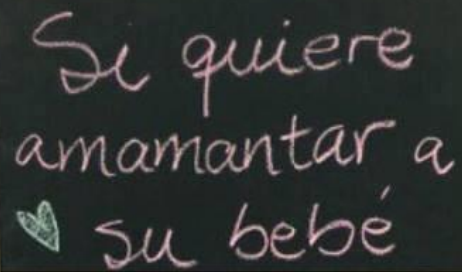 Si quiere
amamantar a
su bebé